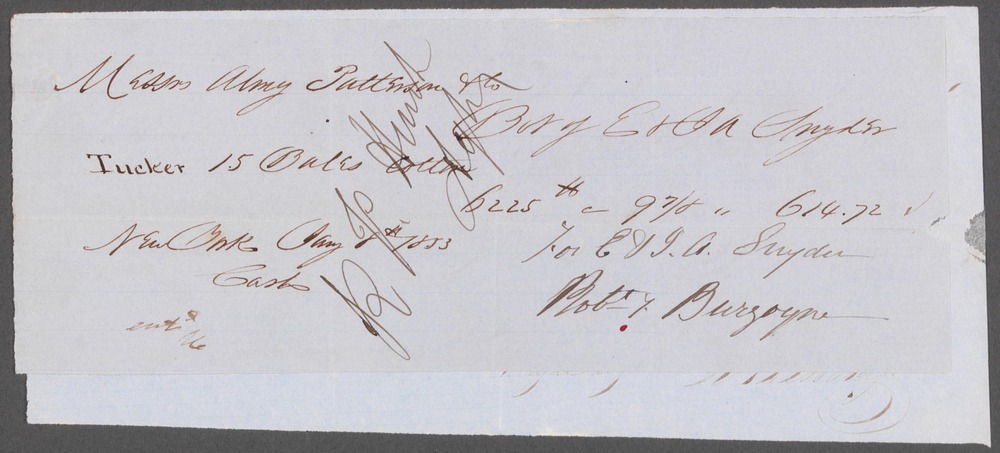 Messrs Almy Patterson & Co
Bot of E & J A Snyder
Tucker 15 Bales Cotton
6225 lb @ 9 7/8 " 614.72
New York Jany 8th 1853
For E & J. A. Snyder
Cash
Robt F. Burgoyne
entd